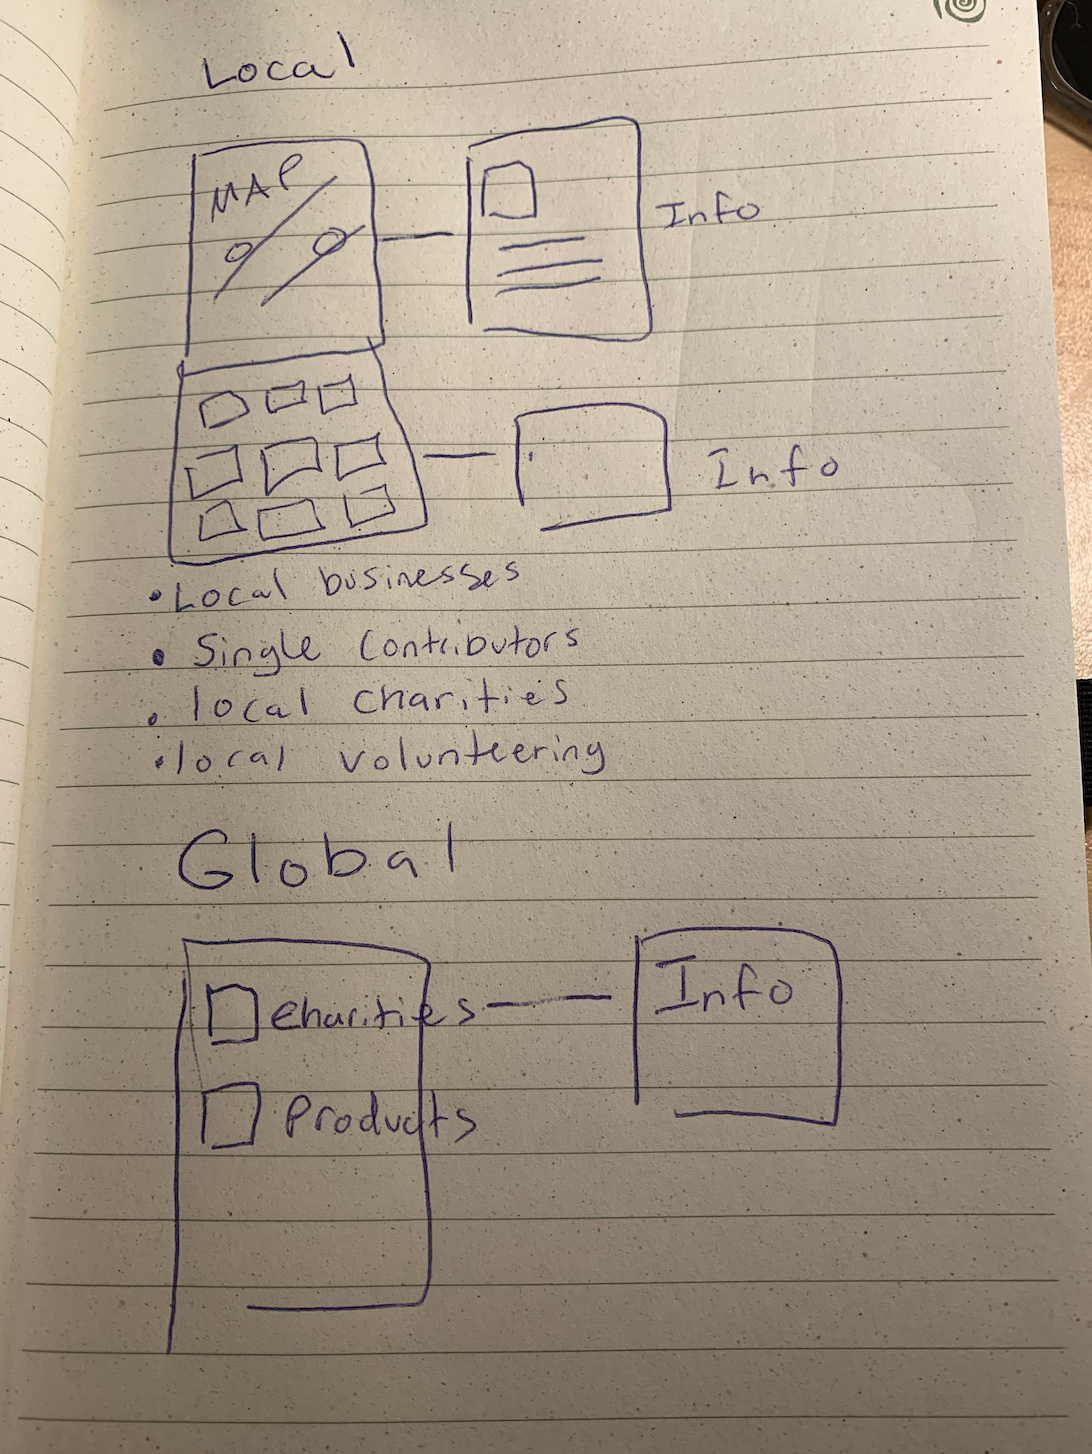 Local
MAP
Info
Info
• Local businesses
• Single Contributors
• local charities
• local volunteering
Global
Charities
Info
Products